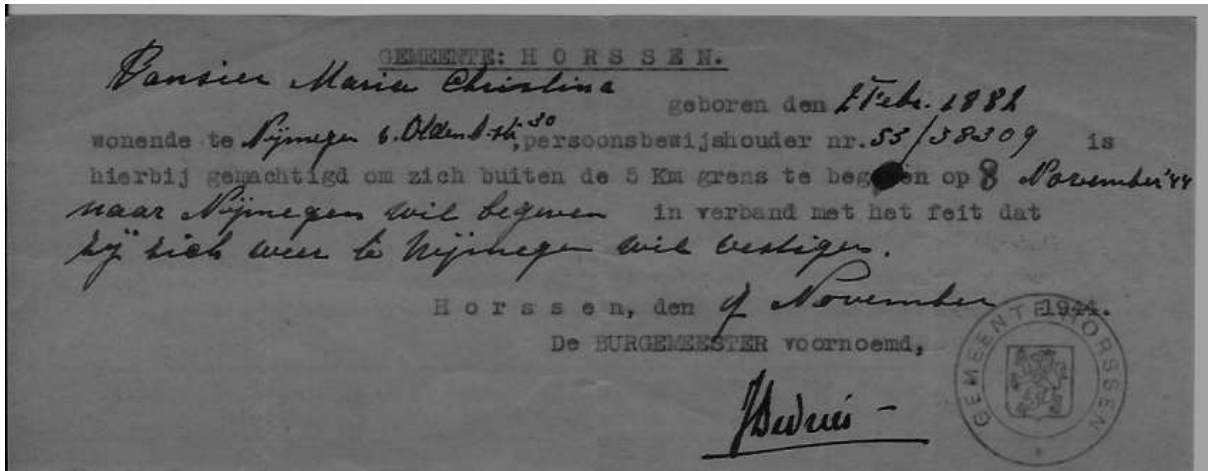 GEMEENTE: H O R S S E N.
Pansier Maria Christina
geboren den 2 Febr. 1882
wonende te Nijmegen v. Olden b. str. 30, persoonsbewijshouder nr. 53/38309 is
hierbij gemachtigd om zich buiten de 5 Km grens te begeven op 8 November '44
naar Nijmegen wil begeven in verband met het feit dat
zij zich weer te Nijmegen wil vestigen.
H o r s s e n, den November 1944.
De BURGEMEESTER voornoemd,
GEMEENTE HORSSEN